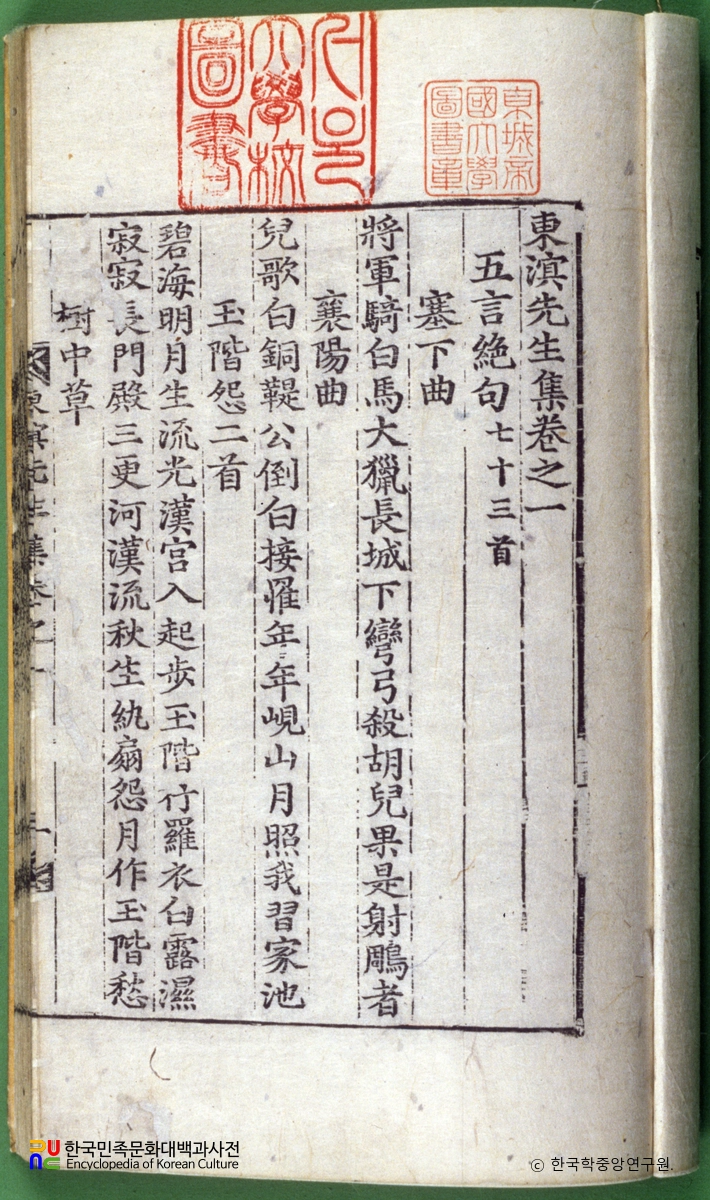 東溟先生集卷之一
五言絶句七十三首
塞下曲
將軍騎白馬大獵長城下彎弓殺胡兒果是射鵰者
襄陽曲
兒歌白銅鞮公倒白接䍦年年峴山月照我習家池
玉階怨二首
碧海明月生流光漢宮入起步玉階行羅衣白露濕
寂寂長門殿三更河漢流秋生紈扇怨月作玉階愁
樹中草
東溟先生集卷之一
서울
大學校
圖書
東城帝
國大學
圖書章
한국민족문화대백과사전
Encyclopedia of Korean Culture
© 한국학중앙연구원